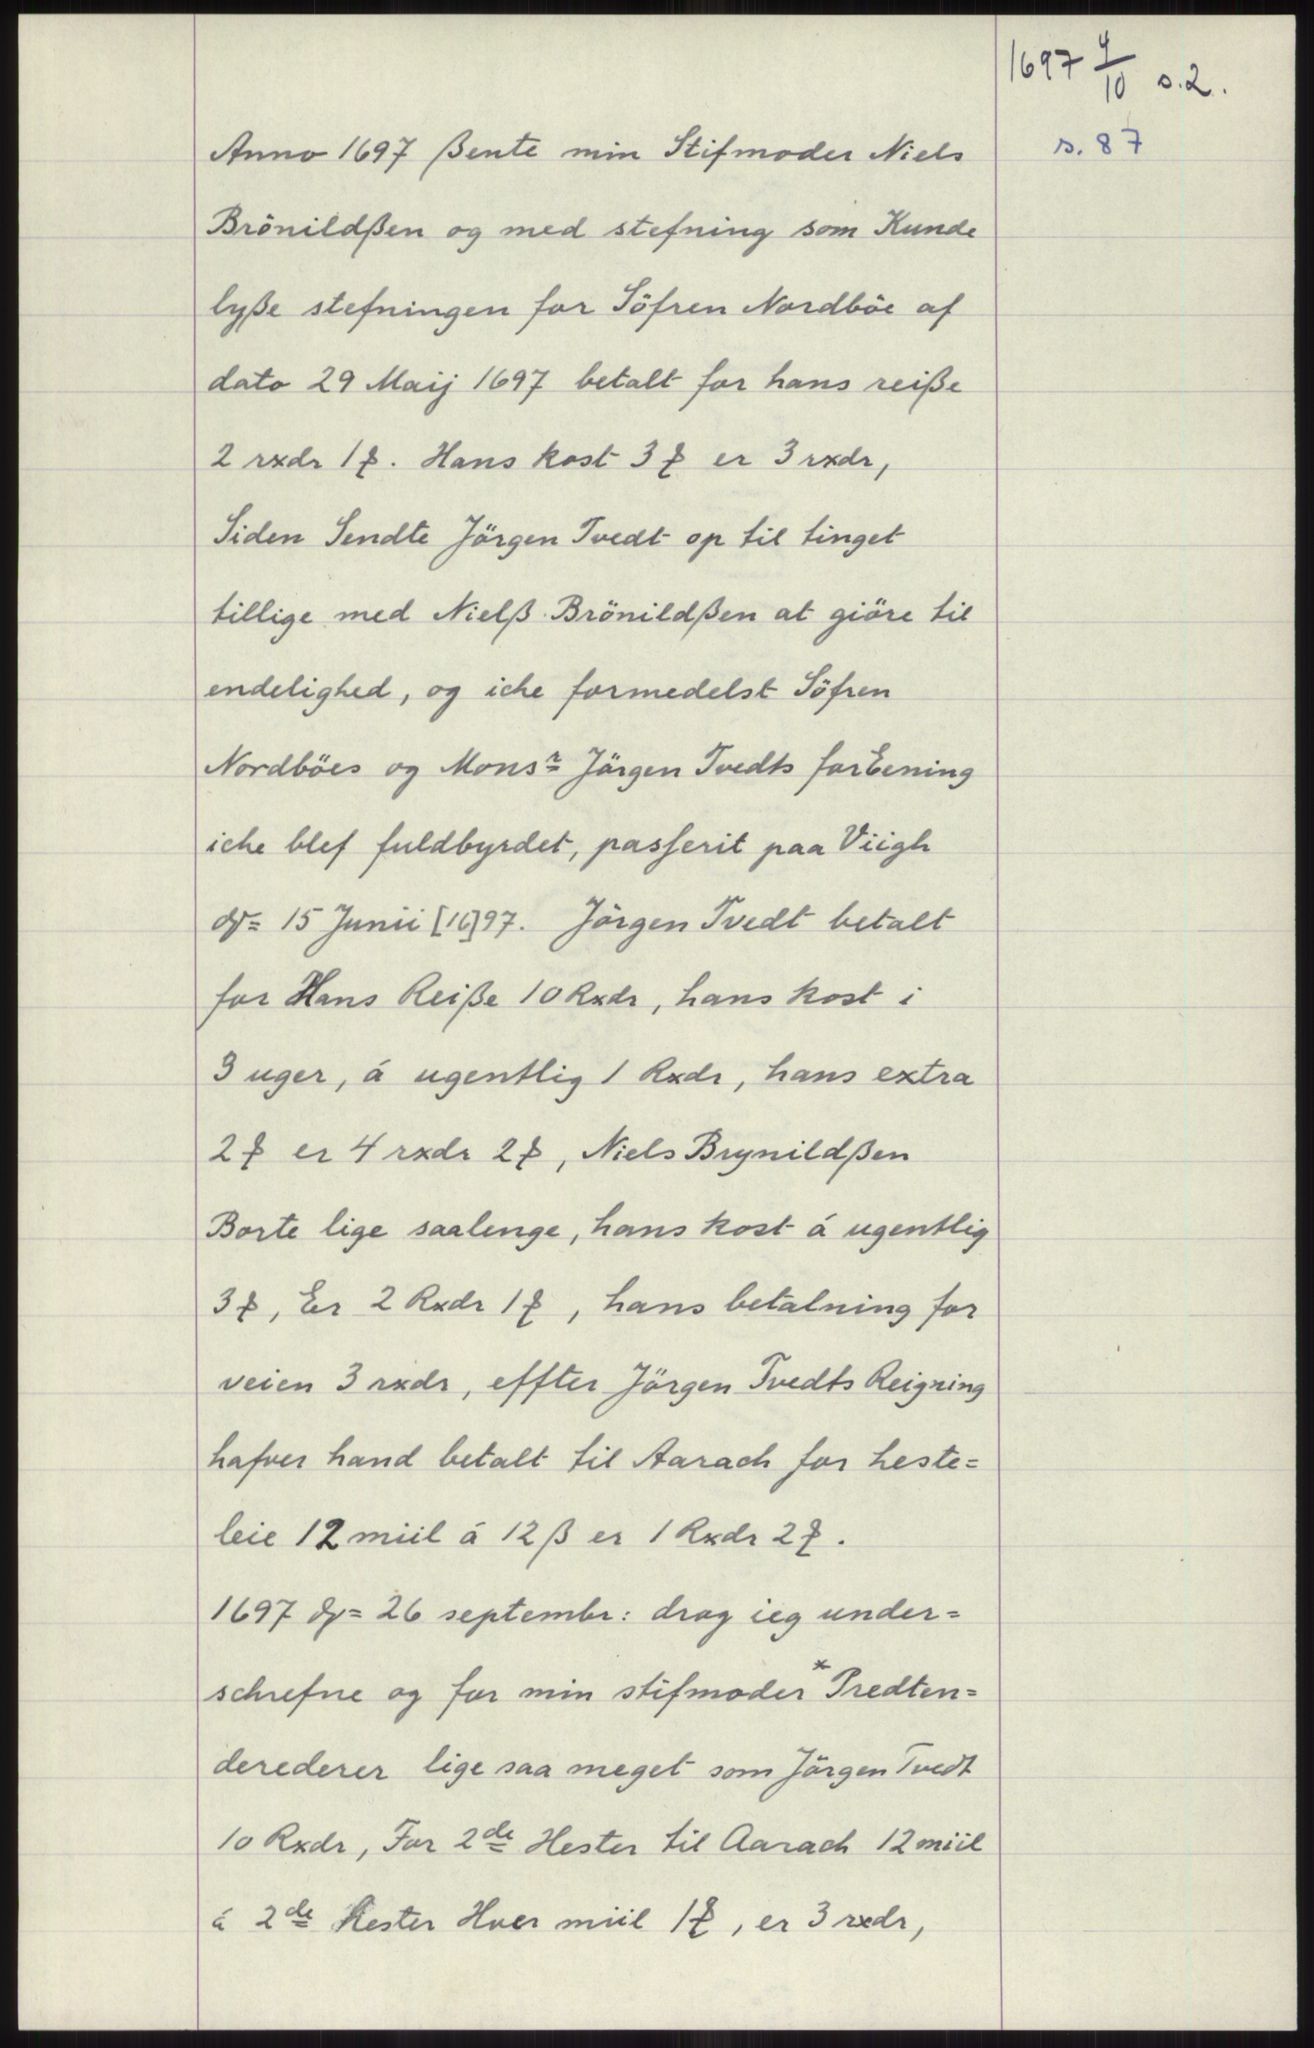 1697 4/10 s.2.
s. 87
Anno 1697 ßente min Stifmoder Niels
Brönildßen og med stefning som Kunde
lyße stefningen for Söfren Nordböe af
dato 29 Maij 1697 betalt for hans reiße
2 rxdr 1 ꝑ. Hans kost 3 ꝑ er 3 rxdr,
Siden Sendte Jörgen Tvedt op til tinget
tillige med Nielß Brönildßen at giöre til
endelighed, og iche formedelst Söfren
Nordböes og Monsr Jörgen Tvedts forEening
iche blef fuldbyrdet, passerit paa Viigh
dn= 15 Junii [16]97. Jörgen Tvedt betalt
for Hans Reiße 10 Rxdr, hans kost i
3 uger, á ugentlig 1 Rxdr, hans extra
2 ꝑ er 4 rxdr 2 ꝑ, Niels Brynildßen
Borte lige saalenge, hans kost á ugentlig
3 ꝑ, Er 2 Rxdr 1 ꝑ, hans betalning for
veien 3 rxdr, effter Jörgen Tvedts Reigning
hafver hand betalt til Aarach for heste=
leie 12 miil á 12 ß er 1 Rxdr 2 ꝑ.
1697 dn= 26 septembr: drog ieg under=
schrefne og for min stifmoder * Predten=
derederer lige saa meget som Jörgen Tvedt
10 Rxdr, For 2de Hester til Aarach 12 miil
á 2de Hester Hver miil 1 ꝑ, er 3 rxdr,